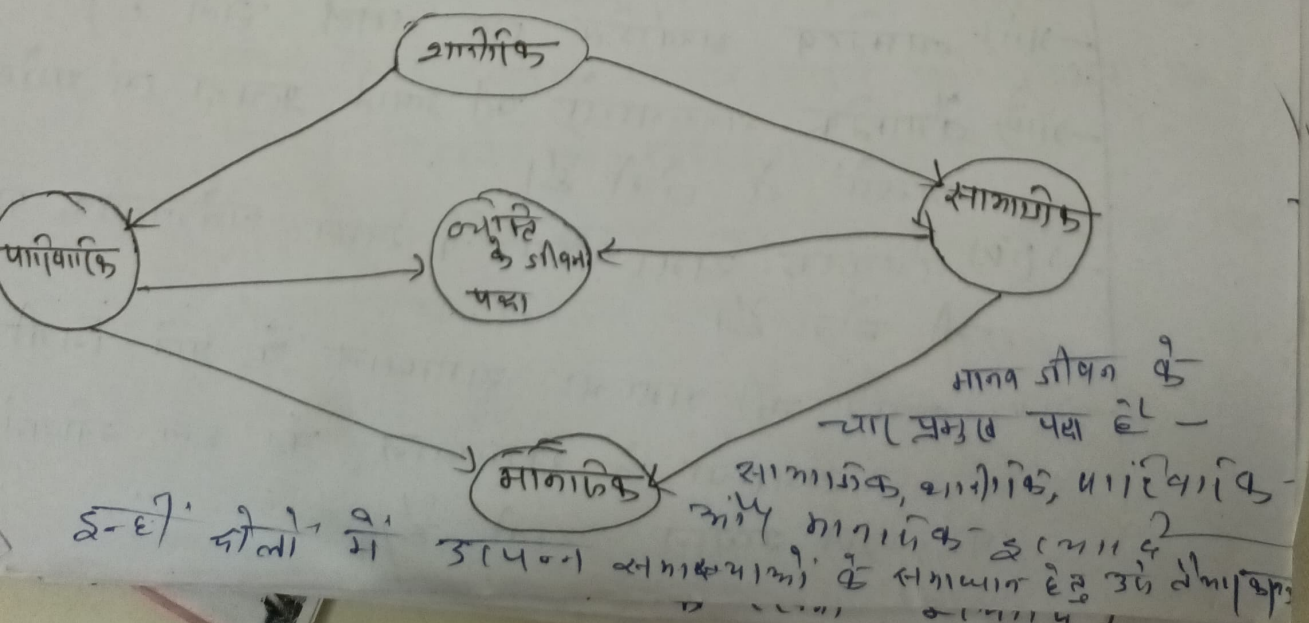 शारीरिक
सामाजिक
पारिवारिक
व्यक्ति
के जीवन
पक्ष
मानसिक
मानव जीवन के
चार प्रमुख पक्ष हैं –
सामाजिक, शारीरिक, पारिवारिक
और मानसिक इत्यादि
इन्हीं में उत्पन्न समस्याओं के समाधान हेतु उसे तैयार